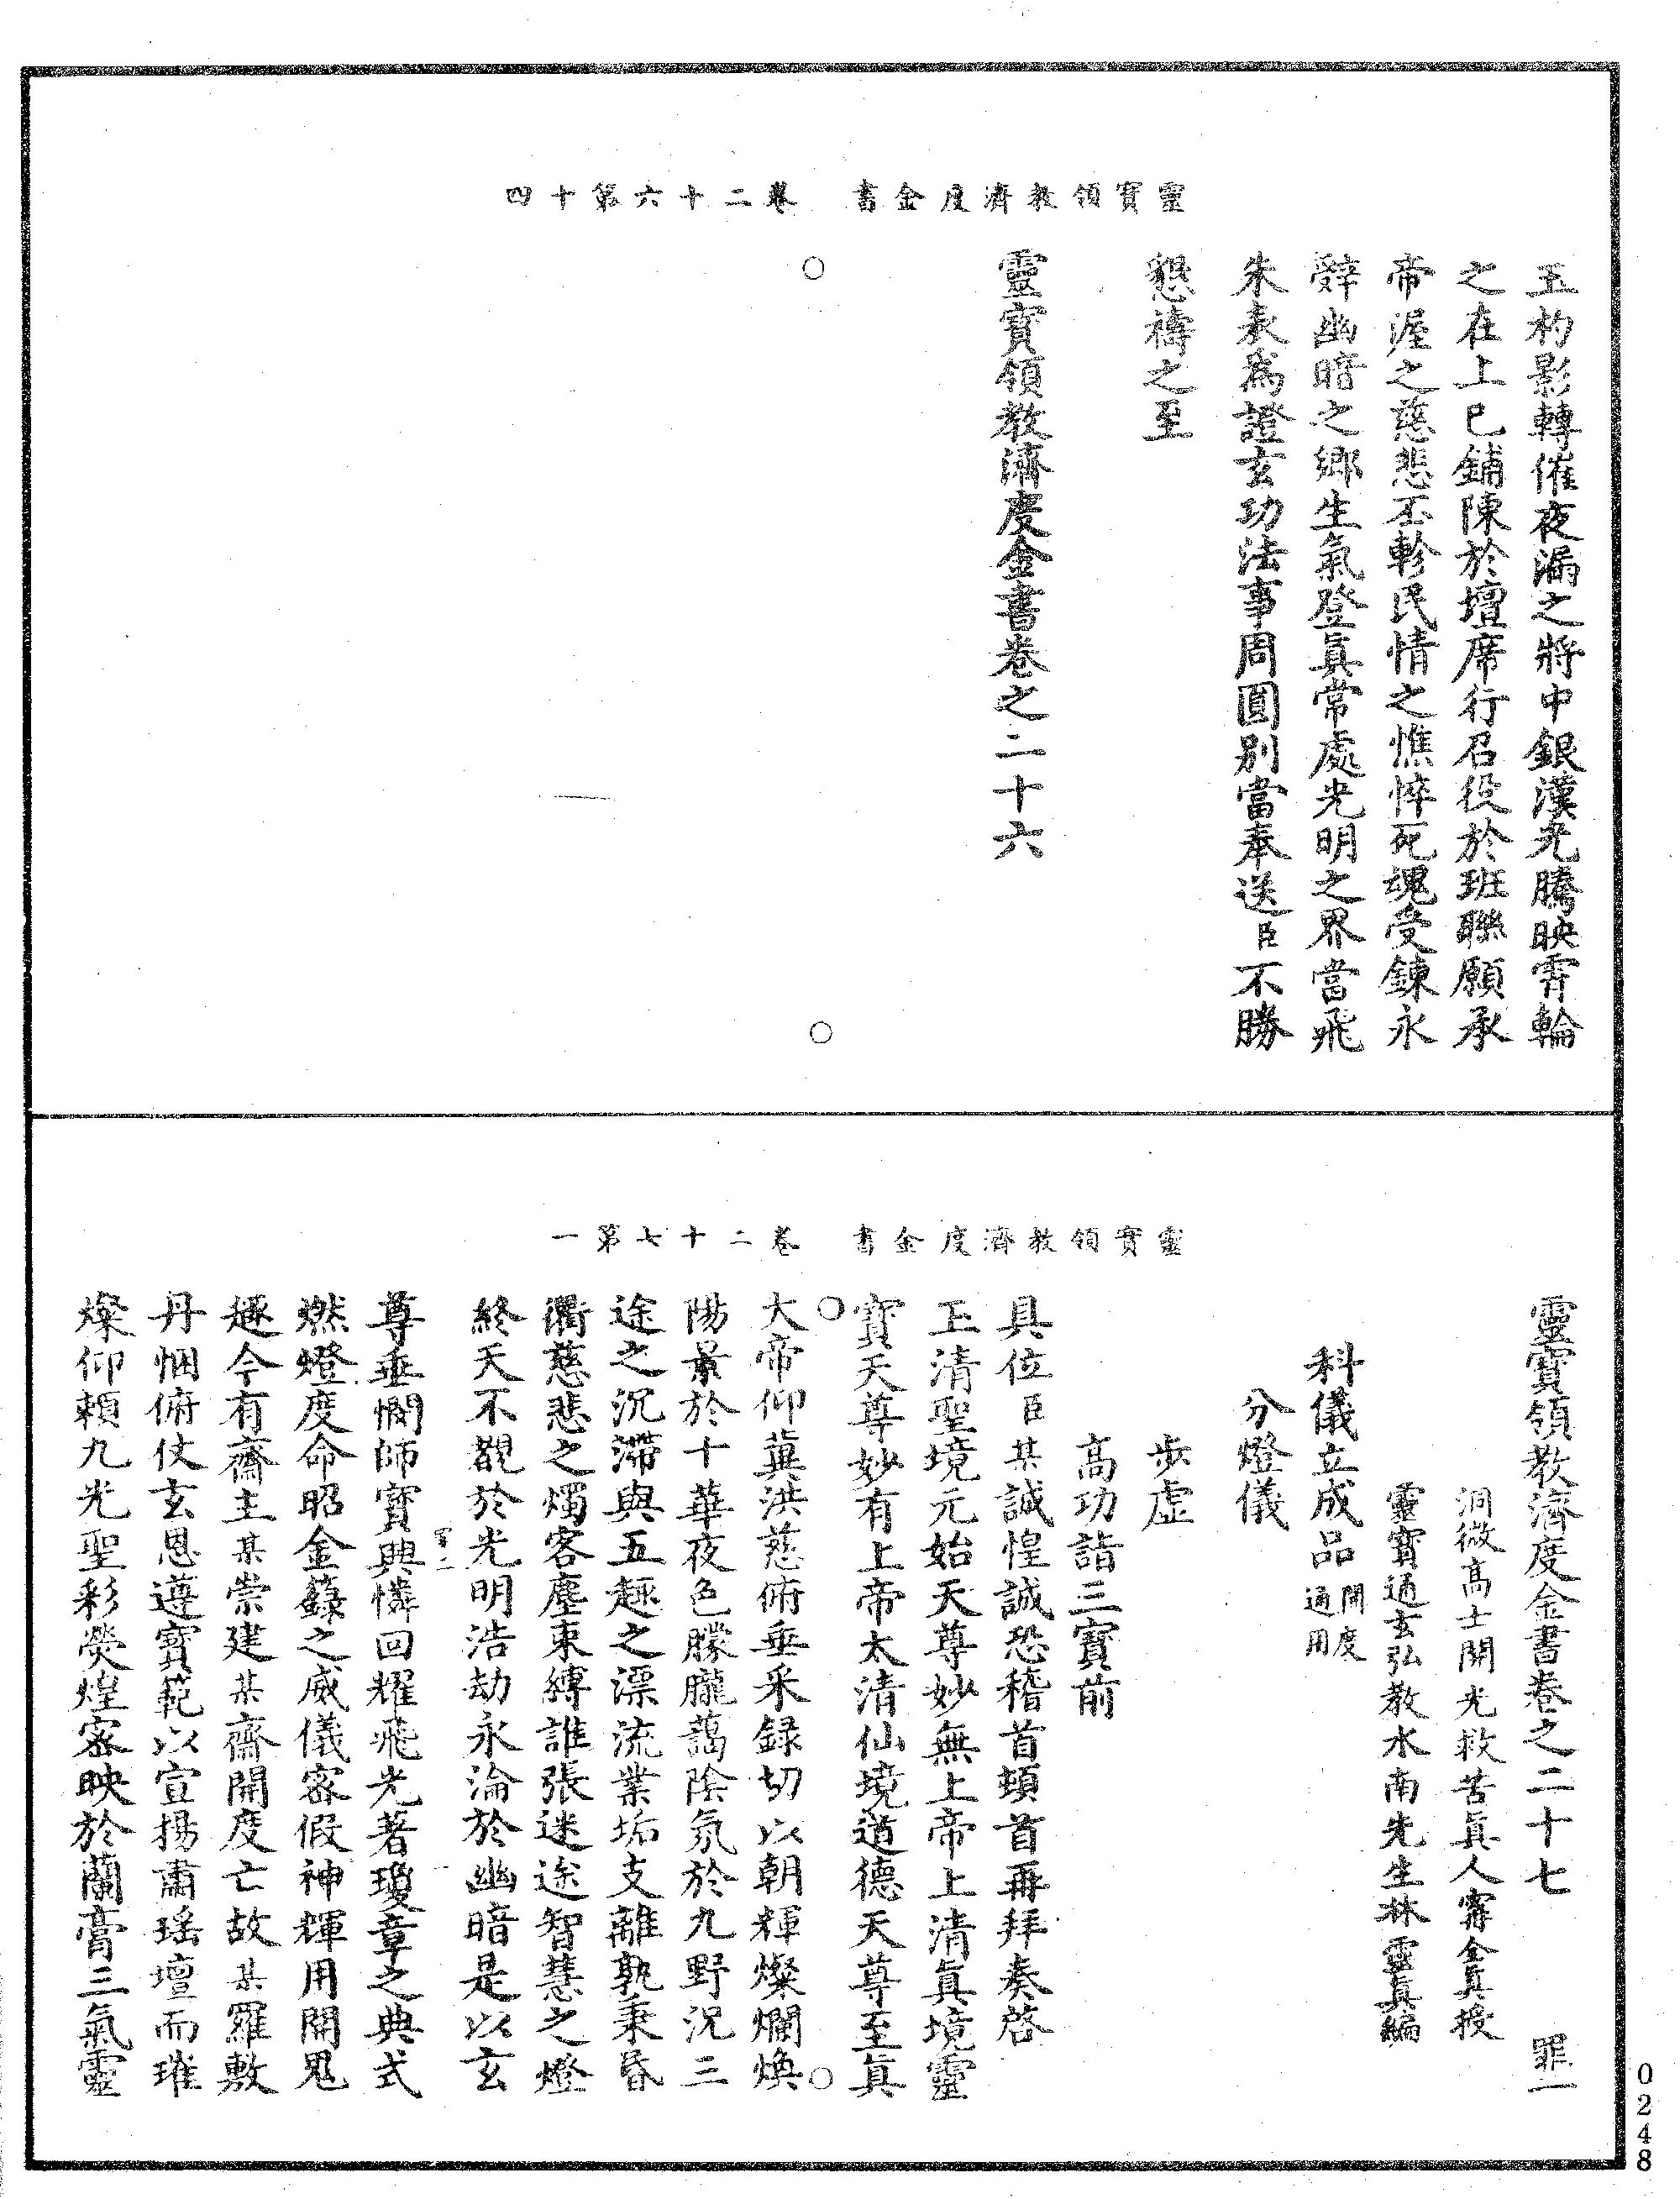 靈寶領教濟度金書　卷二十六第十四
玉杓影轉催夜漏之將中銀漢光騰映霄輪
之在上已鋪陳於壇席行召役於班聯願承
帝渥之慈悲丕軫民情之憔悴死魂受鍊永
辭幽暗之鄉生氣登真常處光明之界當飛
朱表為證玄功法事周圓別當奉送臣不勝
懇禱之至
靈寶領教濟度金書卷之二十六
靈寶領教濟度金書　卷二十七第一
靈寶領教濟度金書卷之二十七　罪一
洞微高士開光救苦真人甯全真授
靈寶通玄弘教水南先生林靈真編
科儀立成品開度通用
分燈儀
步虛
高功詣三寶前
具位臣某誠惶誠恐稽首頓首再拜奏啓
玉清聖境元始天尊妙無上帝上清真境靈
寶天尊妙有上帝太清仙境道德天尊至真
大帝仰冀洪慈俯垂采録切以朝輝燦爛煥
陽景於十華夜色朦朧藹陰氛於九野況三
途之沉滯與五趣之漂流業垢支離孰秉昏
衢慈悲之燭客塵束縛誰張迷途智慧之燈
終天不覩於光明浩劫永淪於幽暗是以玄
尊垂憫師寶興憐回耀飛光著瓊章之典式
燃燈度命昭金籙之威儀密假神輝用開鬼
趣今有齋主某崇建某齋開度亡故某羅敷
丹悃俯仗玄恩遵寶範以宣揚肅瑤壇而璀
燦仰賴九光聖彩熒煌密映於蘭膏三氣靈
罪二
0248